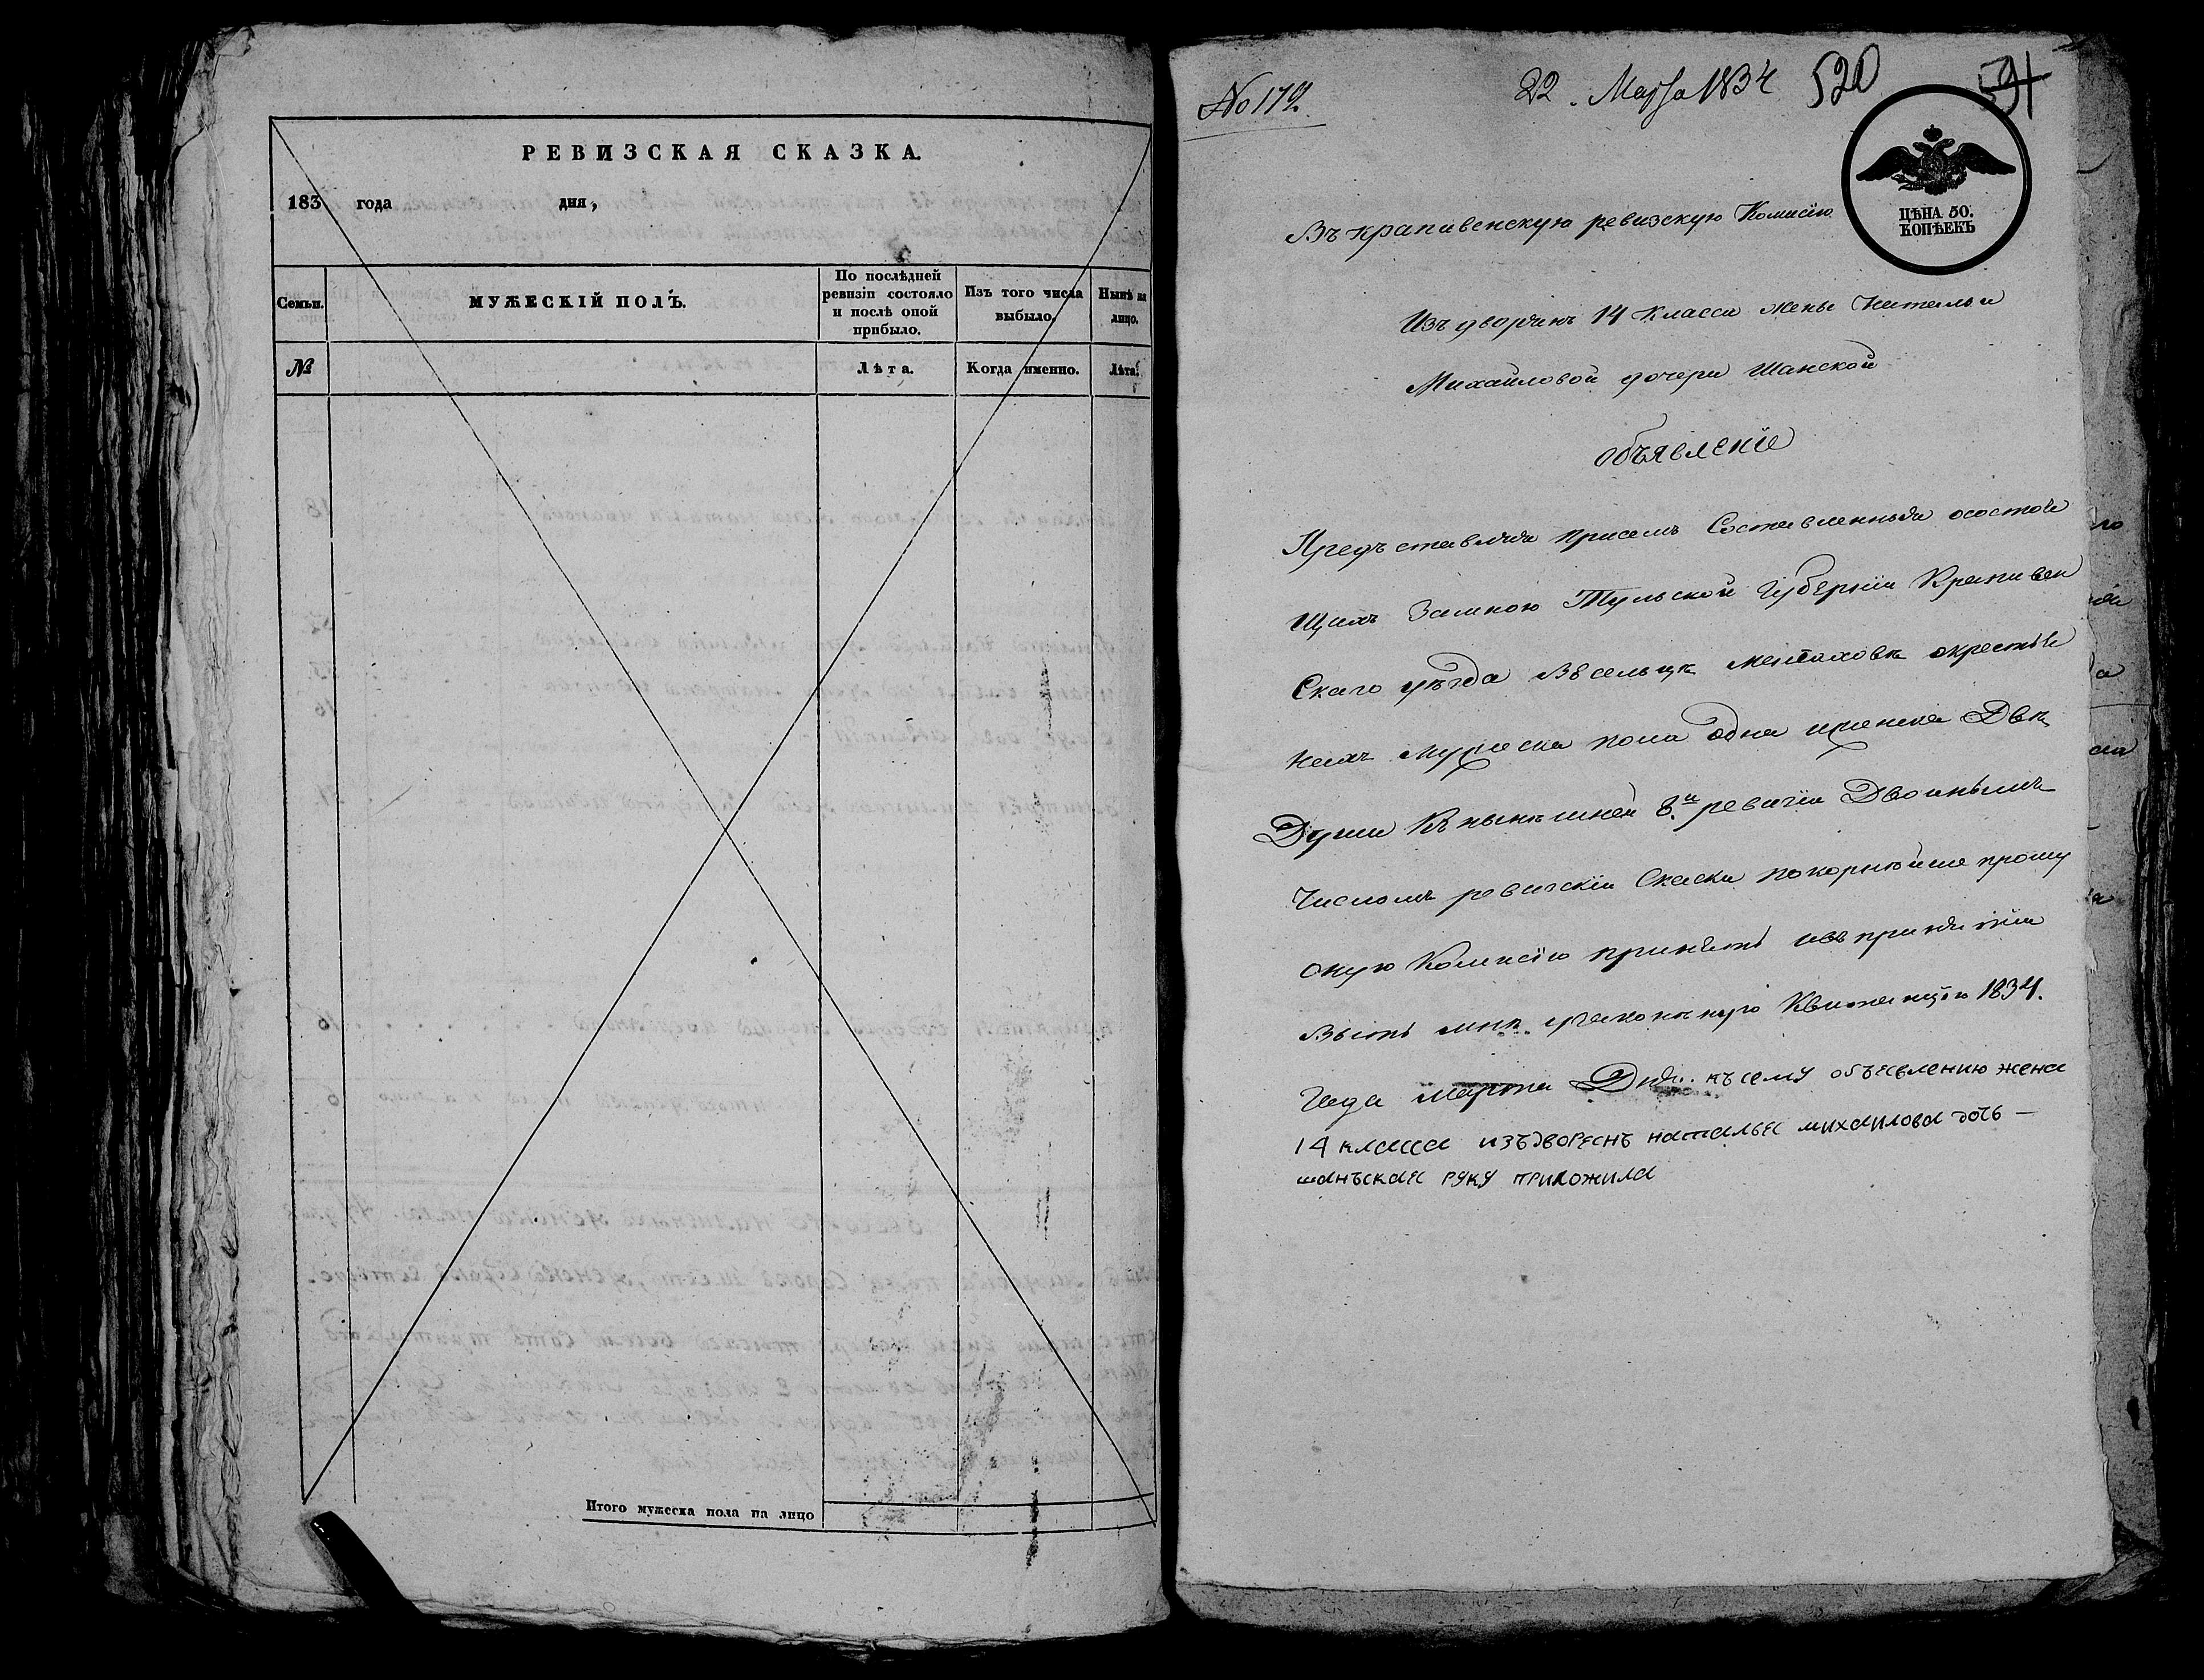 РЕВИЗСКАЯ СКАЗКА.
183 года дня,
Семьи. МУЖЕСКІЙ ПОЛЪ. По послѣдней ревизіи состояло и послѣ оной прибыло. Изъ того числа выбыло. Нынѣ на лицо.
№ Лѣта. Когда именно. Лѣта.
Итого мужеска пола на лицо
№ 179.
22. Марта 1834 520 591
ЦѢНА 50.
КОПѢЕКЪ
Въ крапивенскую ревизскую Комисію
Изъ дворянъ 14 класса жены Натальи
Михайловой дочери Шанской
объявленіе
Предъставляя присемъ Составленныя осостоя
Щихъ Замною Тульской Губерніи Крапивен
Скаго уѣзда Всельцѣ окрестья
нехъ Мужеска пола одна ижен­ска Двѣ
Души Къ нынѣшней 8й ревизіи Двойнымъ
Числомъ ревизскіи Скаски покорнѣйше прошу
оную Комисію принять ивъ принятіи
Выть мнѣ Квитанцію 1834.
Года Марта Дня.. къ сему объевлению жена
14 класса изъдворенъ наталья михаилова дочь —
шанъская руку приложила